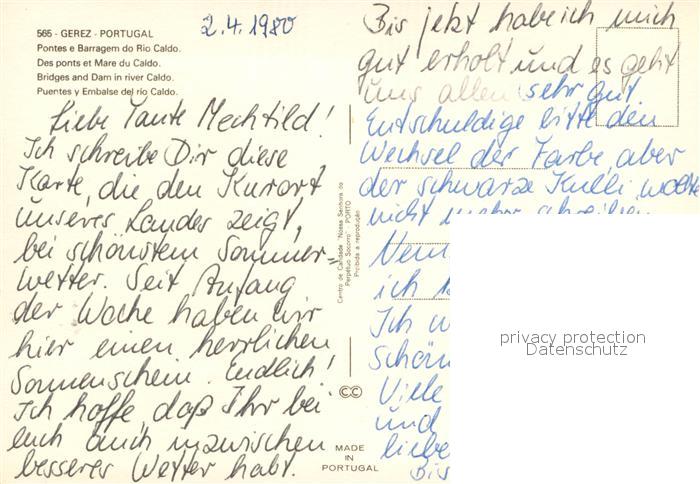 565 - GEREZ - PORTUGAL
Pontes e Barragem do Rio Caldo.
Des ponts et Mare du Caldo.
Bridges and Dam in river Caldo.
Puentes y Embalse del río Caldo.
2.4.1980
Liebe Tante Mechtild!
Ich schreibe Dir diese
Karte, die den Kurort
unseres Landes zeigt,
bei schönstem Sommer=
wetter. Seit Anfang
der Woche haben wir
hier einen herrlichen
Sonnenschein. Endlich!
Ich hoffe, daß Ihr bei
euch auch inzwischen
besseres Wetter habt.
Centro de Caridade "Nossa Senhora do
Perpétuo Socorro" - PORTO
Proibida a reprodução
MADE
IN
PORTUGAL
Bis jetzt habe ich mich
gut erholt und es geht
uns allen sehr gut
Entschuldige bitte den
Wechsel der Farbe, aber
der schwarze Kulli wollte
nicht mehr schreiben
ich
Ich
schön
Viele
und
liebe
Bis
privacy protection
Datenschutz